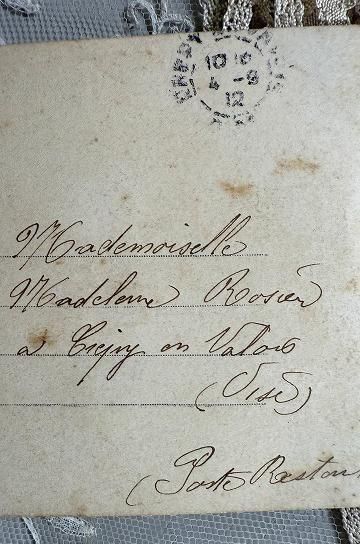 10
4 - 9
12
Mademoiselle
Madeleine Rosier
a Crépy en Valois
(Oise)
(Poste Restan